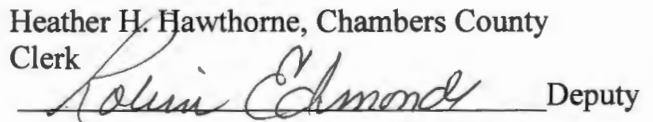 Heather H. Hawthorne, Chambers County
Clerk
Robin Edmonds Deputy